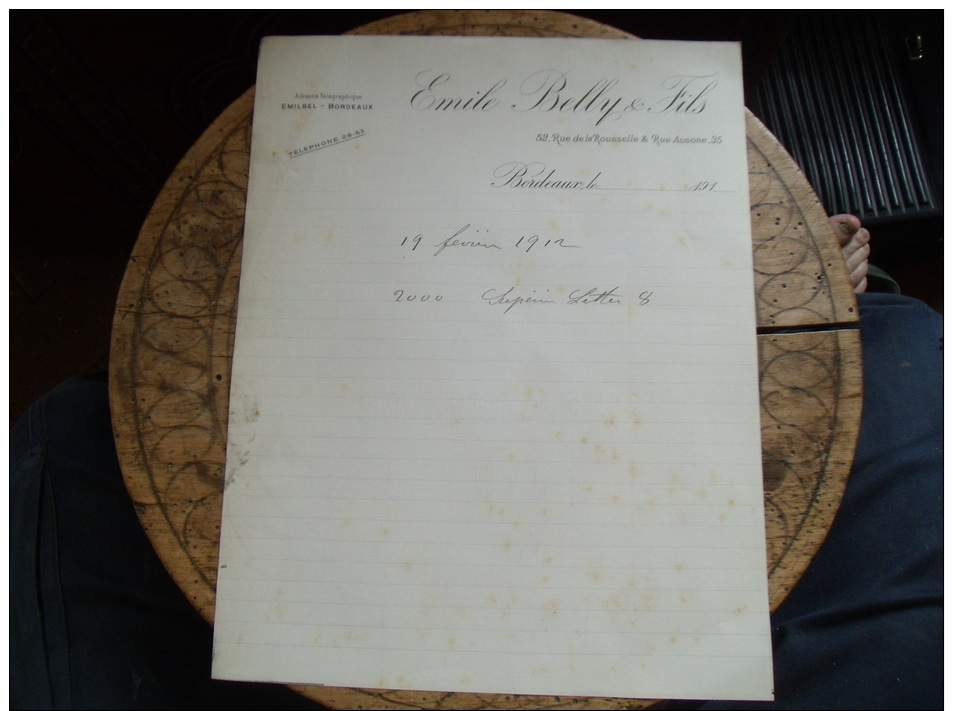 Adresse Télégraphique
EMILBEL - BORDEAUX
TÉLÉPHONE 26-53
Emile Belly & Fils
52, Rue de la Rousselle & Rue Ausone, 35
Bordeaux, le 191
19 février 1912
2000 Letter 8